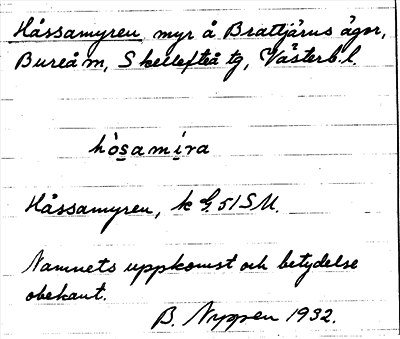 Håssamyren, myr å Brattjärns ägor,
Bureå m, Skellefteå tg, Västerb. l.
hòsamíra
Håssamyren, k G 51 S M.
Namnets uppkomst och betydelse
obekant.
B. Nyppen 1932.